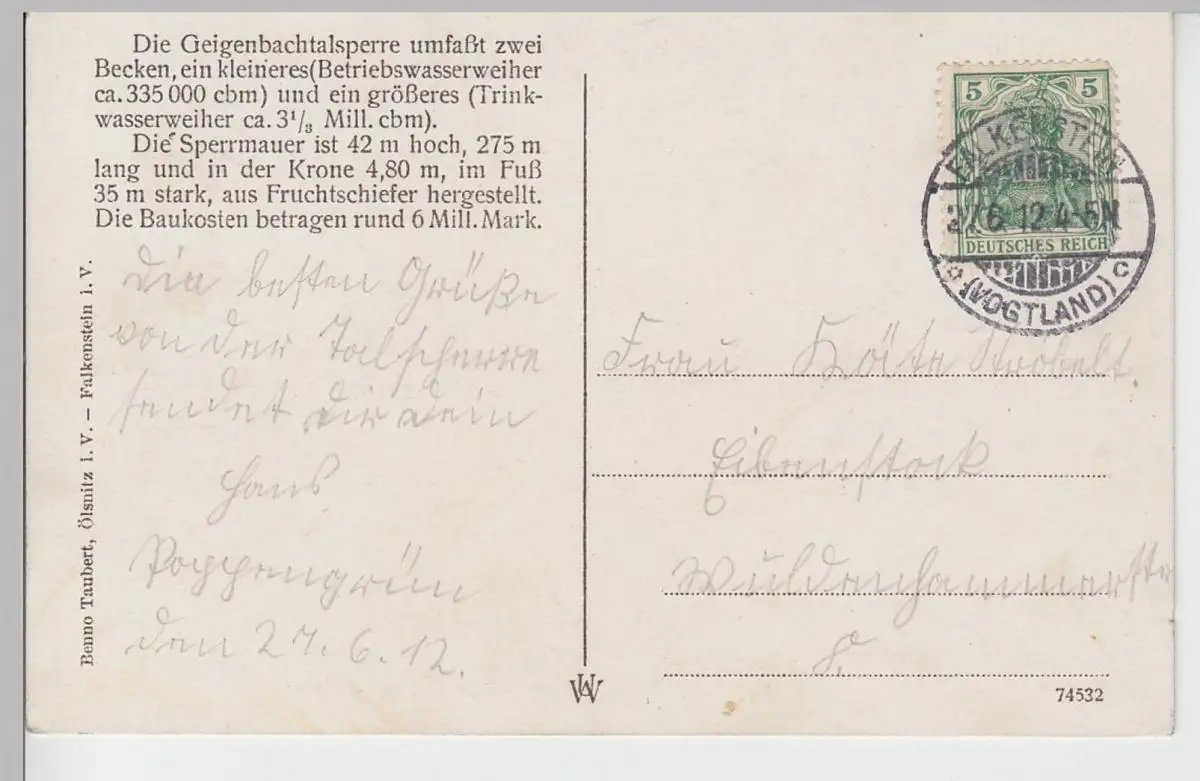 Die Geigenbachtalsperre umfaßt zwei
Becken, ein kleineres (Betriebswasserweiher
ca. 335 000 cbm) und ein größeres (Trink-
wasserweiher ca. 3 1/3 Mill. cbm).
Die Sperrmauer ist 42 m hoch, 275 m
lang und in der Krone 4,80 m, im Fuß
35 m stark, aus Fruchtschiefer hergestellt.
Die Baukosten betragen rund 6 Mill. Mark.
Die besten Grüße
von der Talsperre
sendet Dir Dein
Hans
Poppengrün
den 27. 6. 12.
Benno Taubert, Ölsnitz i. V. – Falkenstein i. V.
5 5
DEUTSCHES REICH
FALKENSTEIN
27.6.12.4-5N
(VOGTLAND) c
Frau Käte Ströbelt.
Eibenstock
Wuldenhammerstr
8.
74532